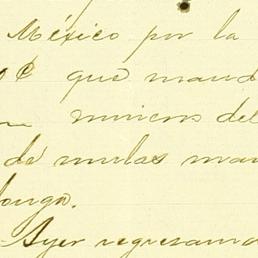 México por la
que mand
unicos del
de mulas man
longa.
- Ayer regresamo